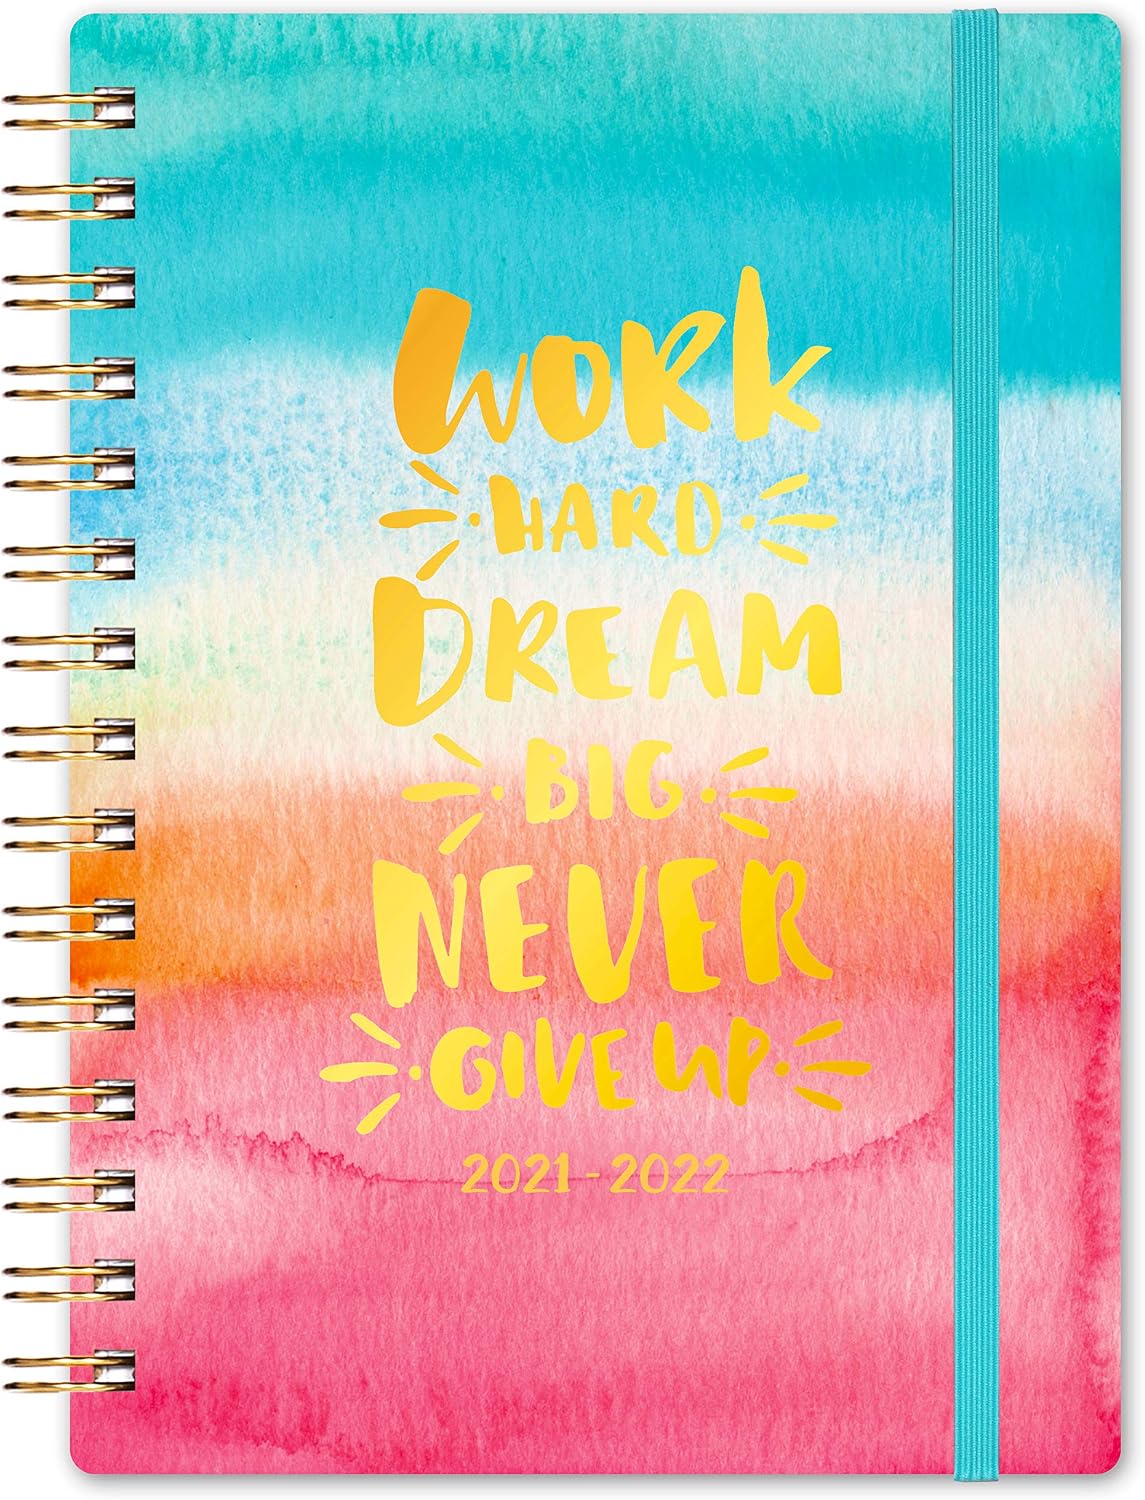 WORK
HARD
DREAM
BIG
NEVER
GIVE UP
2021-2022